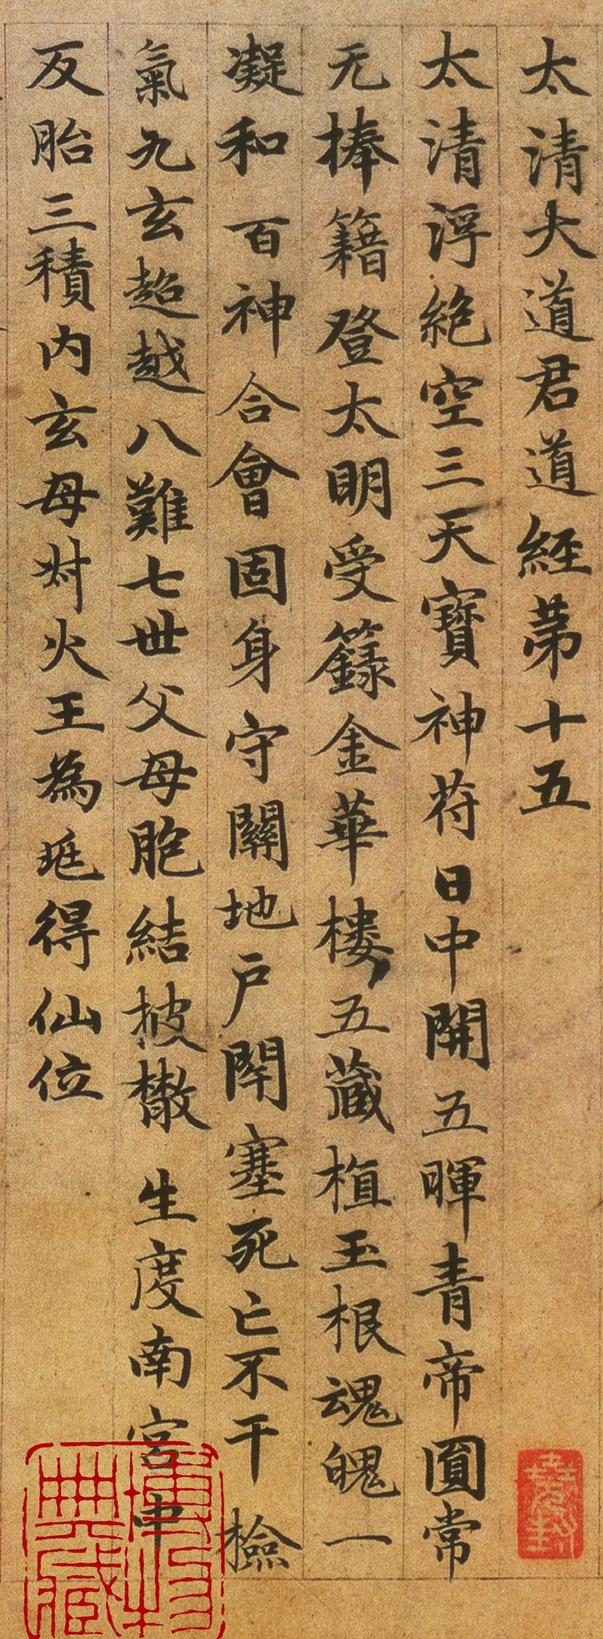 太清大道君道經第十五
太清浮絶空三天寶神苻日中開五暉青帝圓常
无捧籍登太明受籙金華樓五藏植玉根魂魄一
凝和百神合會固身守關地户閇塞死亡不干撿
氣九玄超越八難七世父母胞結披散生度南宫中
反胎三積内玄母対火王為延得仙位
博物典藏